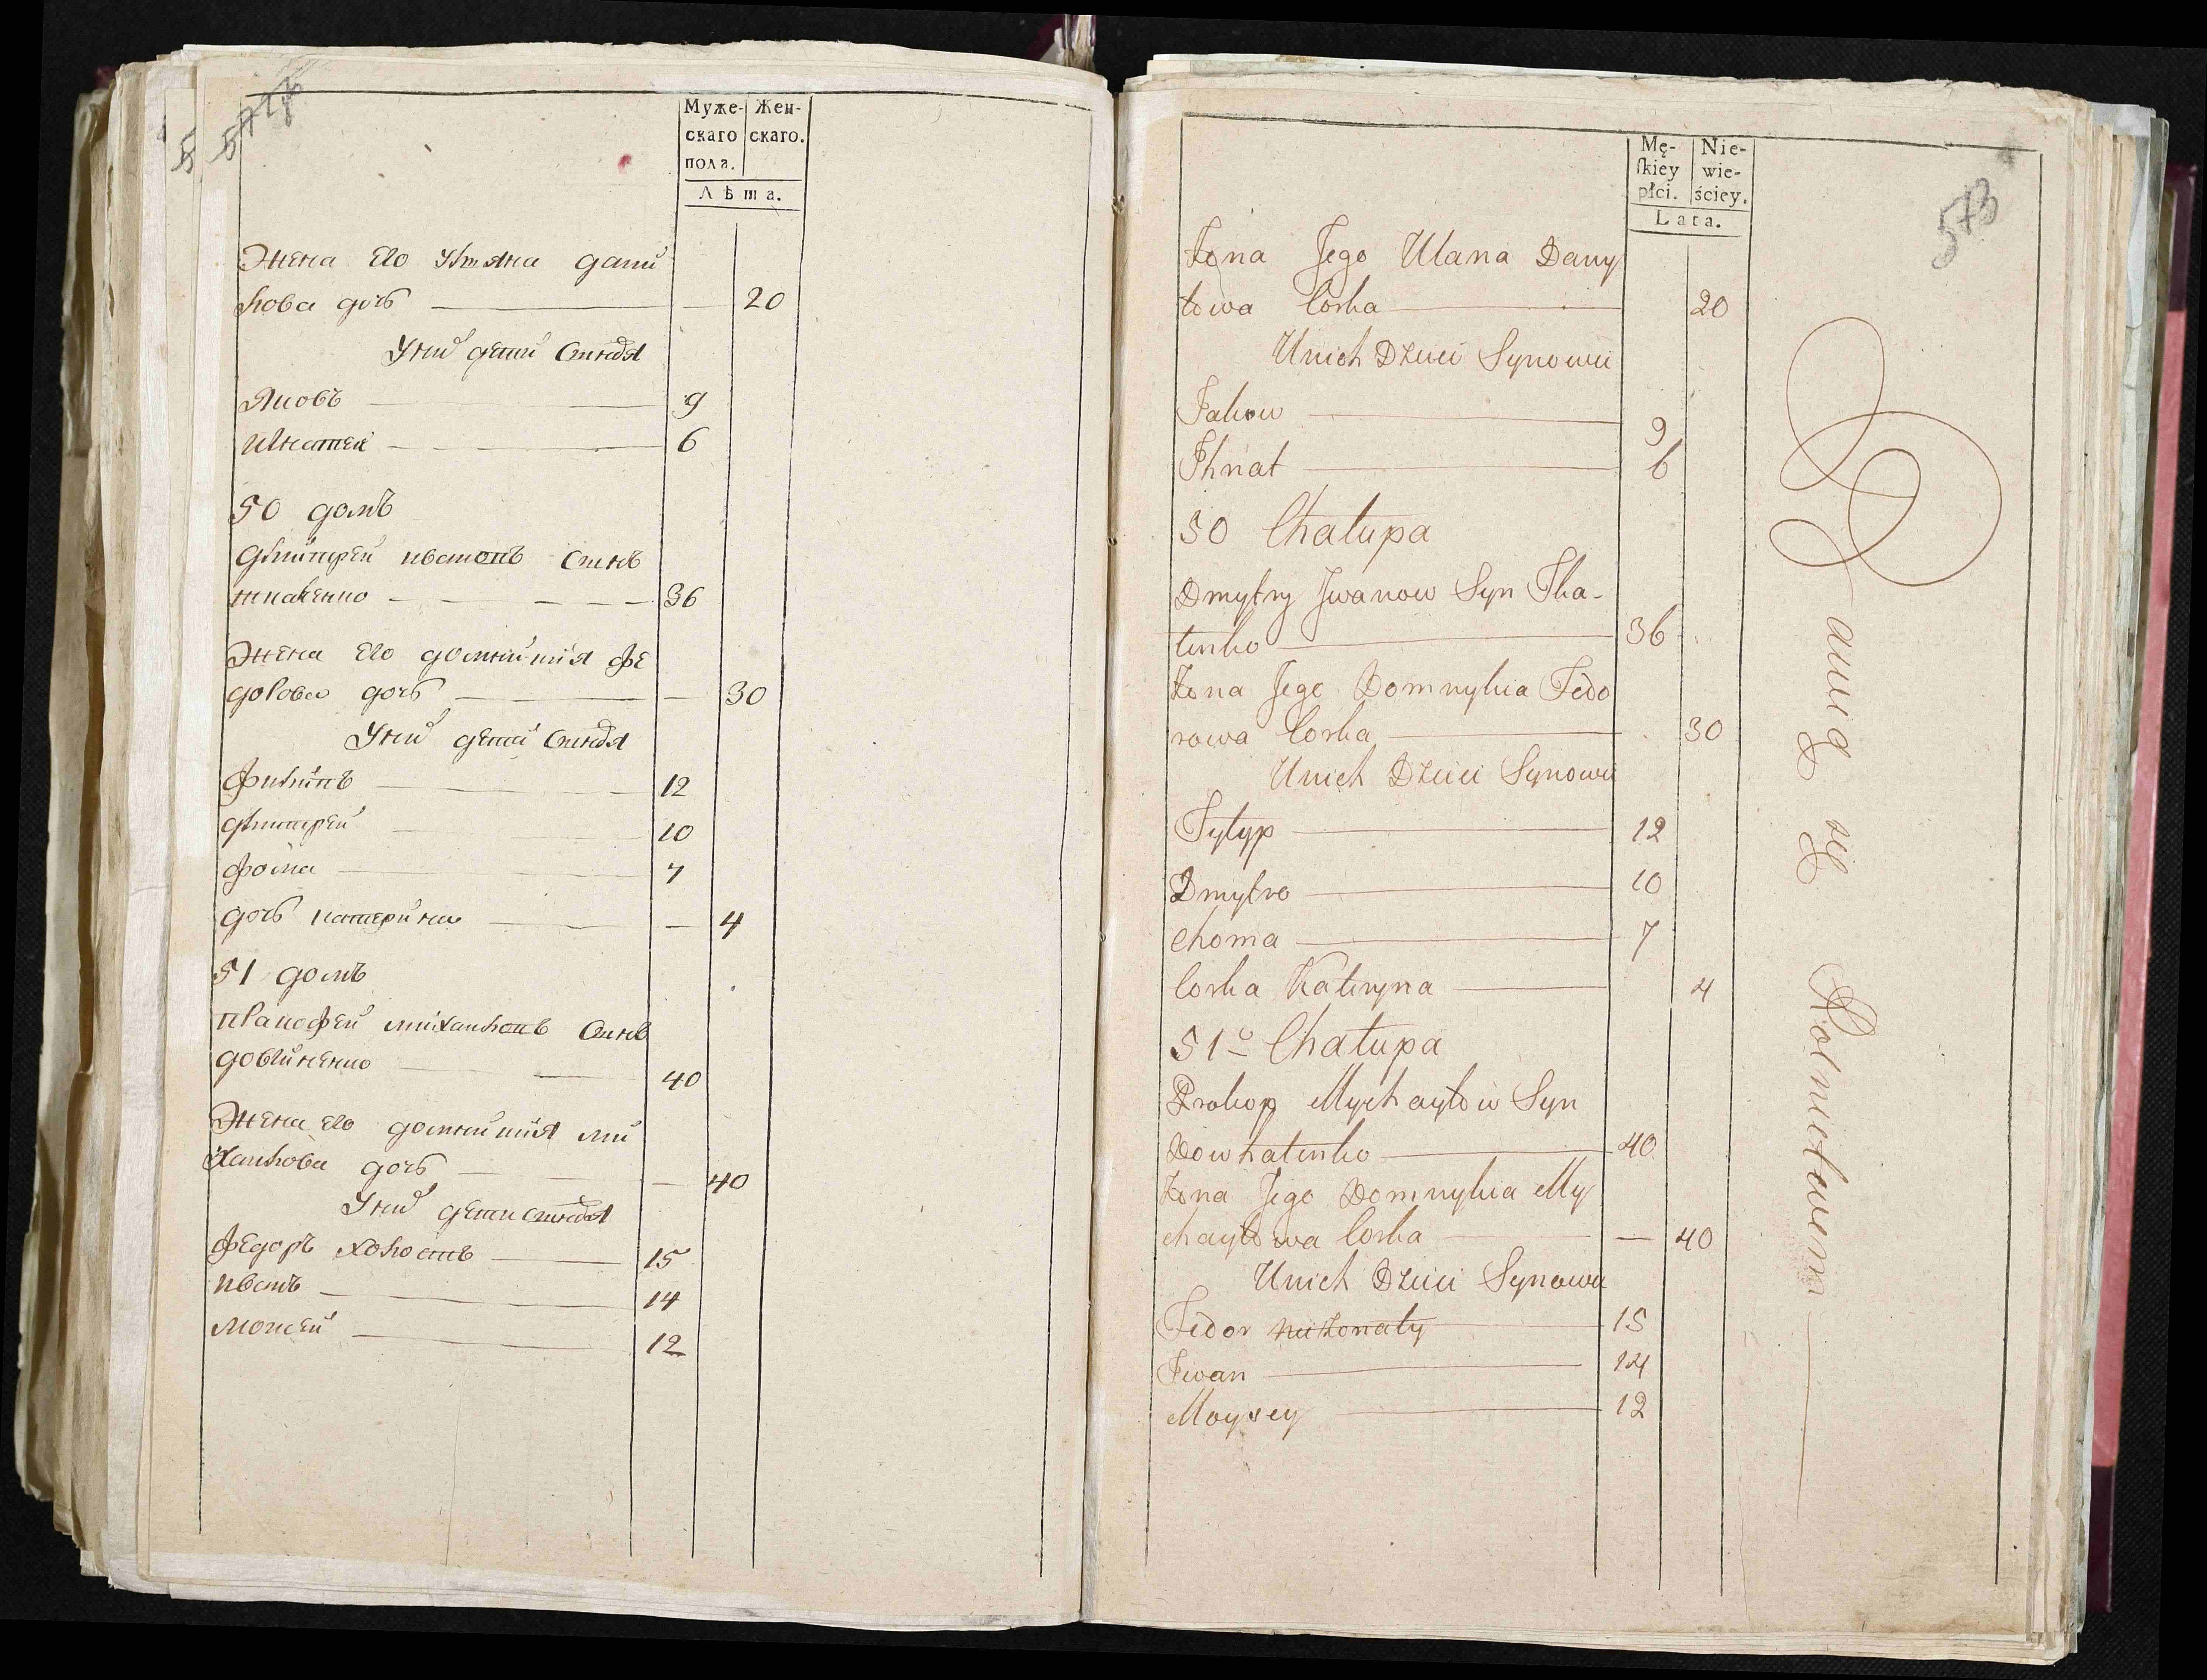 Муже-
скаго
пола.
Жен-
скаго.
Лѣта.
Жена Его Уляна Дани
лова дочь — 20
У нихъ дети Сыновья
Яковъ — 9
Игнатей — 6
50 домъ
Дмитрей Ивановъ Сынъ
Ткаченко — 36
Жена Его Домникия Фе
дорова дочь — 30
У нихъ дети Сыновья
Филипъ — 12
Дмитрей — 10
Фома — 7
дочь Катерина — 4
51 домъ
Пракофей Михайловъ Сынъ
40
Жена Его Домникия Ми
хайлова дочь — 40
У нихъ дети Сыновья
Федоръ холостъ — 15
Иванъ — 14
Моисей — 12
573
Mę-
ſkiey
płci.
Nie-
wie-
ściey.
Lata.
Żona Jego Ulana Dany
łowa Corka — 20
Unich Dzieci Synowie
Jakow — 9
Ihnat — 6
50 Chałupa
Dmytry Jwanow Syn Tka-
czenko — 36
Żona Jego Domnykia Fedo
rowa Corka — 30
Unich Dzieci Synowie
Fylyp — 12
Dmytro — 10
Choma — 7
Corka Kateryna — 4
51º Chałupa
Prokop Mychayłow Syn
40
Żona Jego Domnykia My
chayłowa Corka — 40
Unich Dzieci Synowie
Fedor nieżonaty — 15
Jwan — 14
Moysey — 12